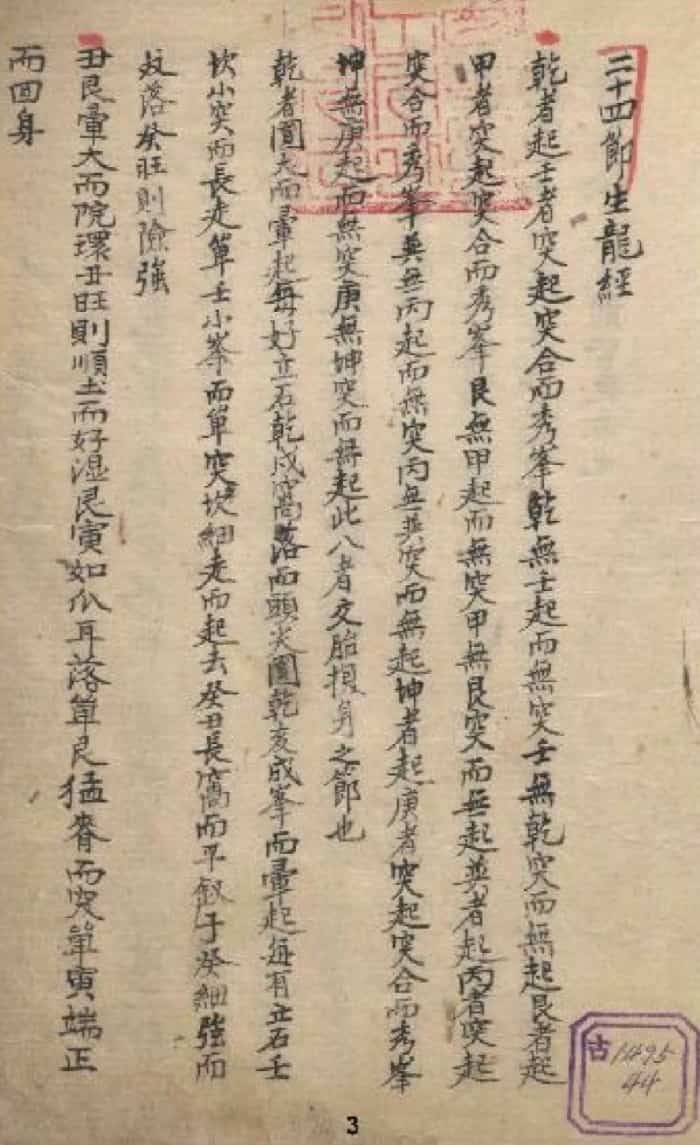 二十四節生龍經
乾者起壬者突起突合而秀峯乾無壬起而無突壬無乾突而無起艮者起
甲者突起突合而秀峯艮無甲起而無突甲無艮突而無起巽者起丙者突起
突合而秀峯巽無丙起而無突丙無巽突而無起坤者起庚者突起突合而秀峯
坤無庚起而無突庚無坤突而無起此八者交胎損身之節也
乾者圓大而暈起每好立石乾戌窩落而頭尖圓乾亥成峯而暈起每有立石壬
坎小突而長走單壬小峯而單突坎細走而起去癸丑長窩而平釵子癸細強而
落癸旺則險強
丑艮暈大而院環丑旺則順去而好湿艮寅如瓜耳落單艮猛脊而突單寅端正
而回身
古 1495
44
3